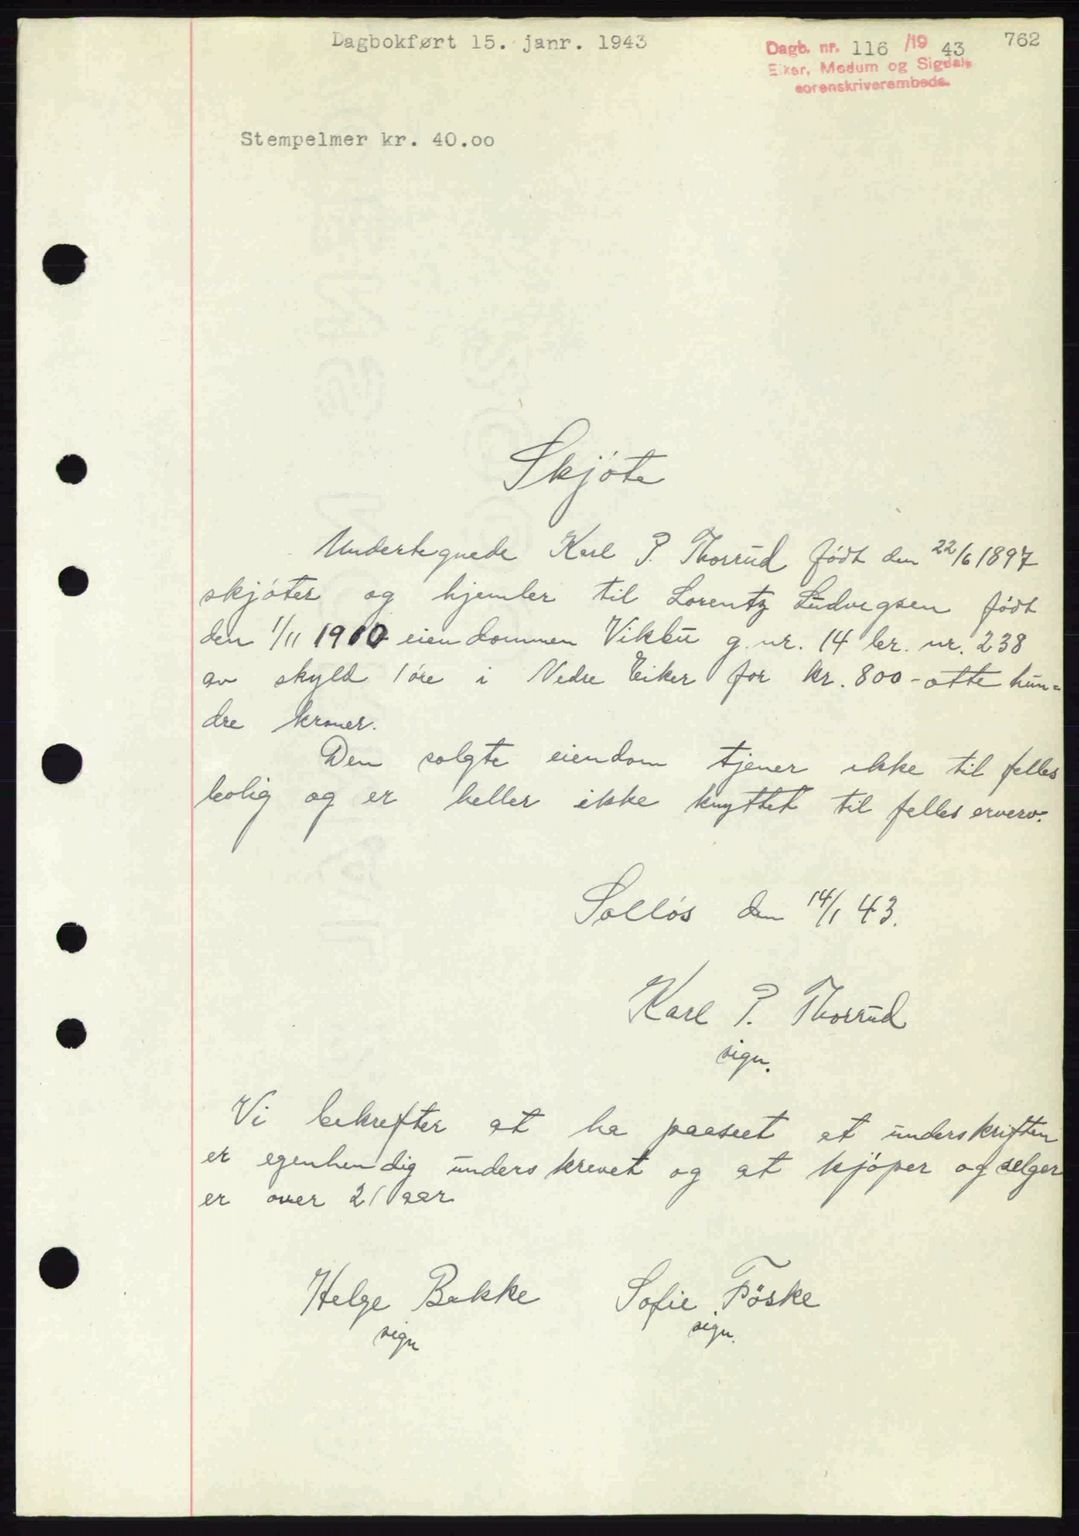 Dagbokført 15. janr. 1943
762
Dagb. nr. 116 /19 43
Eiker, Modum og Sigdals
sorenskriverembede.
Stempelmer kr. 40.oo
Skjóte
Undertegnede Karl P. Thorrud født den 22/6 1897
skjóter og hjemler til Lorentz Ludvigsen født
den 1/11 1910 eiendommen Vikbu g. nr. 14 br. nr. 238
av skyld 1 óre i Nedre Eiker for kr. 800 - otte hun=
dre kroner.
Den solgte eiendom tjener ikke til felles
bolig og er heller ikke knyttet til felles erverv.
Sollós den 14/1 43.
Karl P. Thorrud
sign.
Vi bekrefter at ha paaseet at underskriften
er egenhendig underskrevet og at kjóper og selger
er over 21 aar
Helge Bakke Sofie Föske
sign sign.